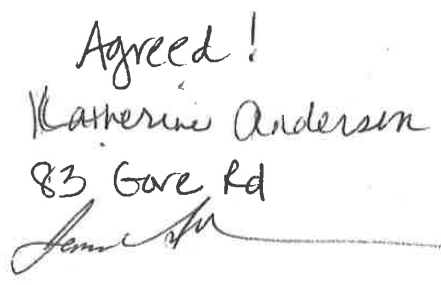 Agreed!
Katherine Anderson
83 Gore Rd